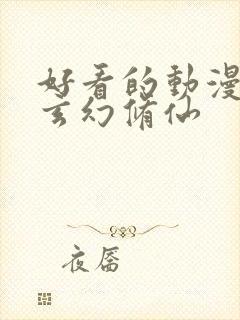 好看的動漫
玄幻脩仙
夜唇